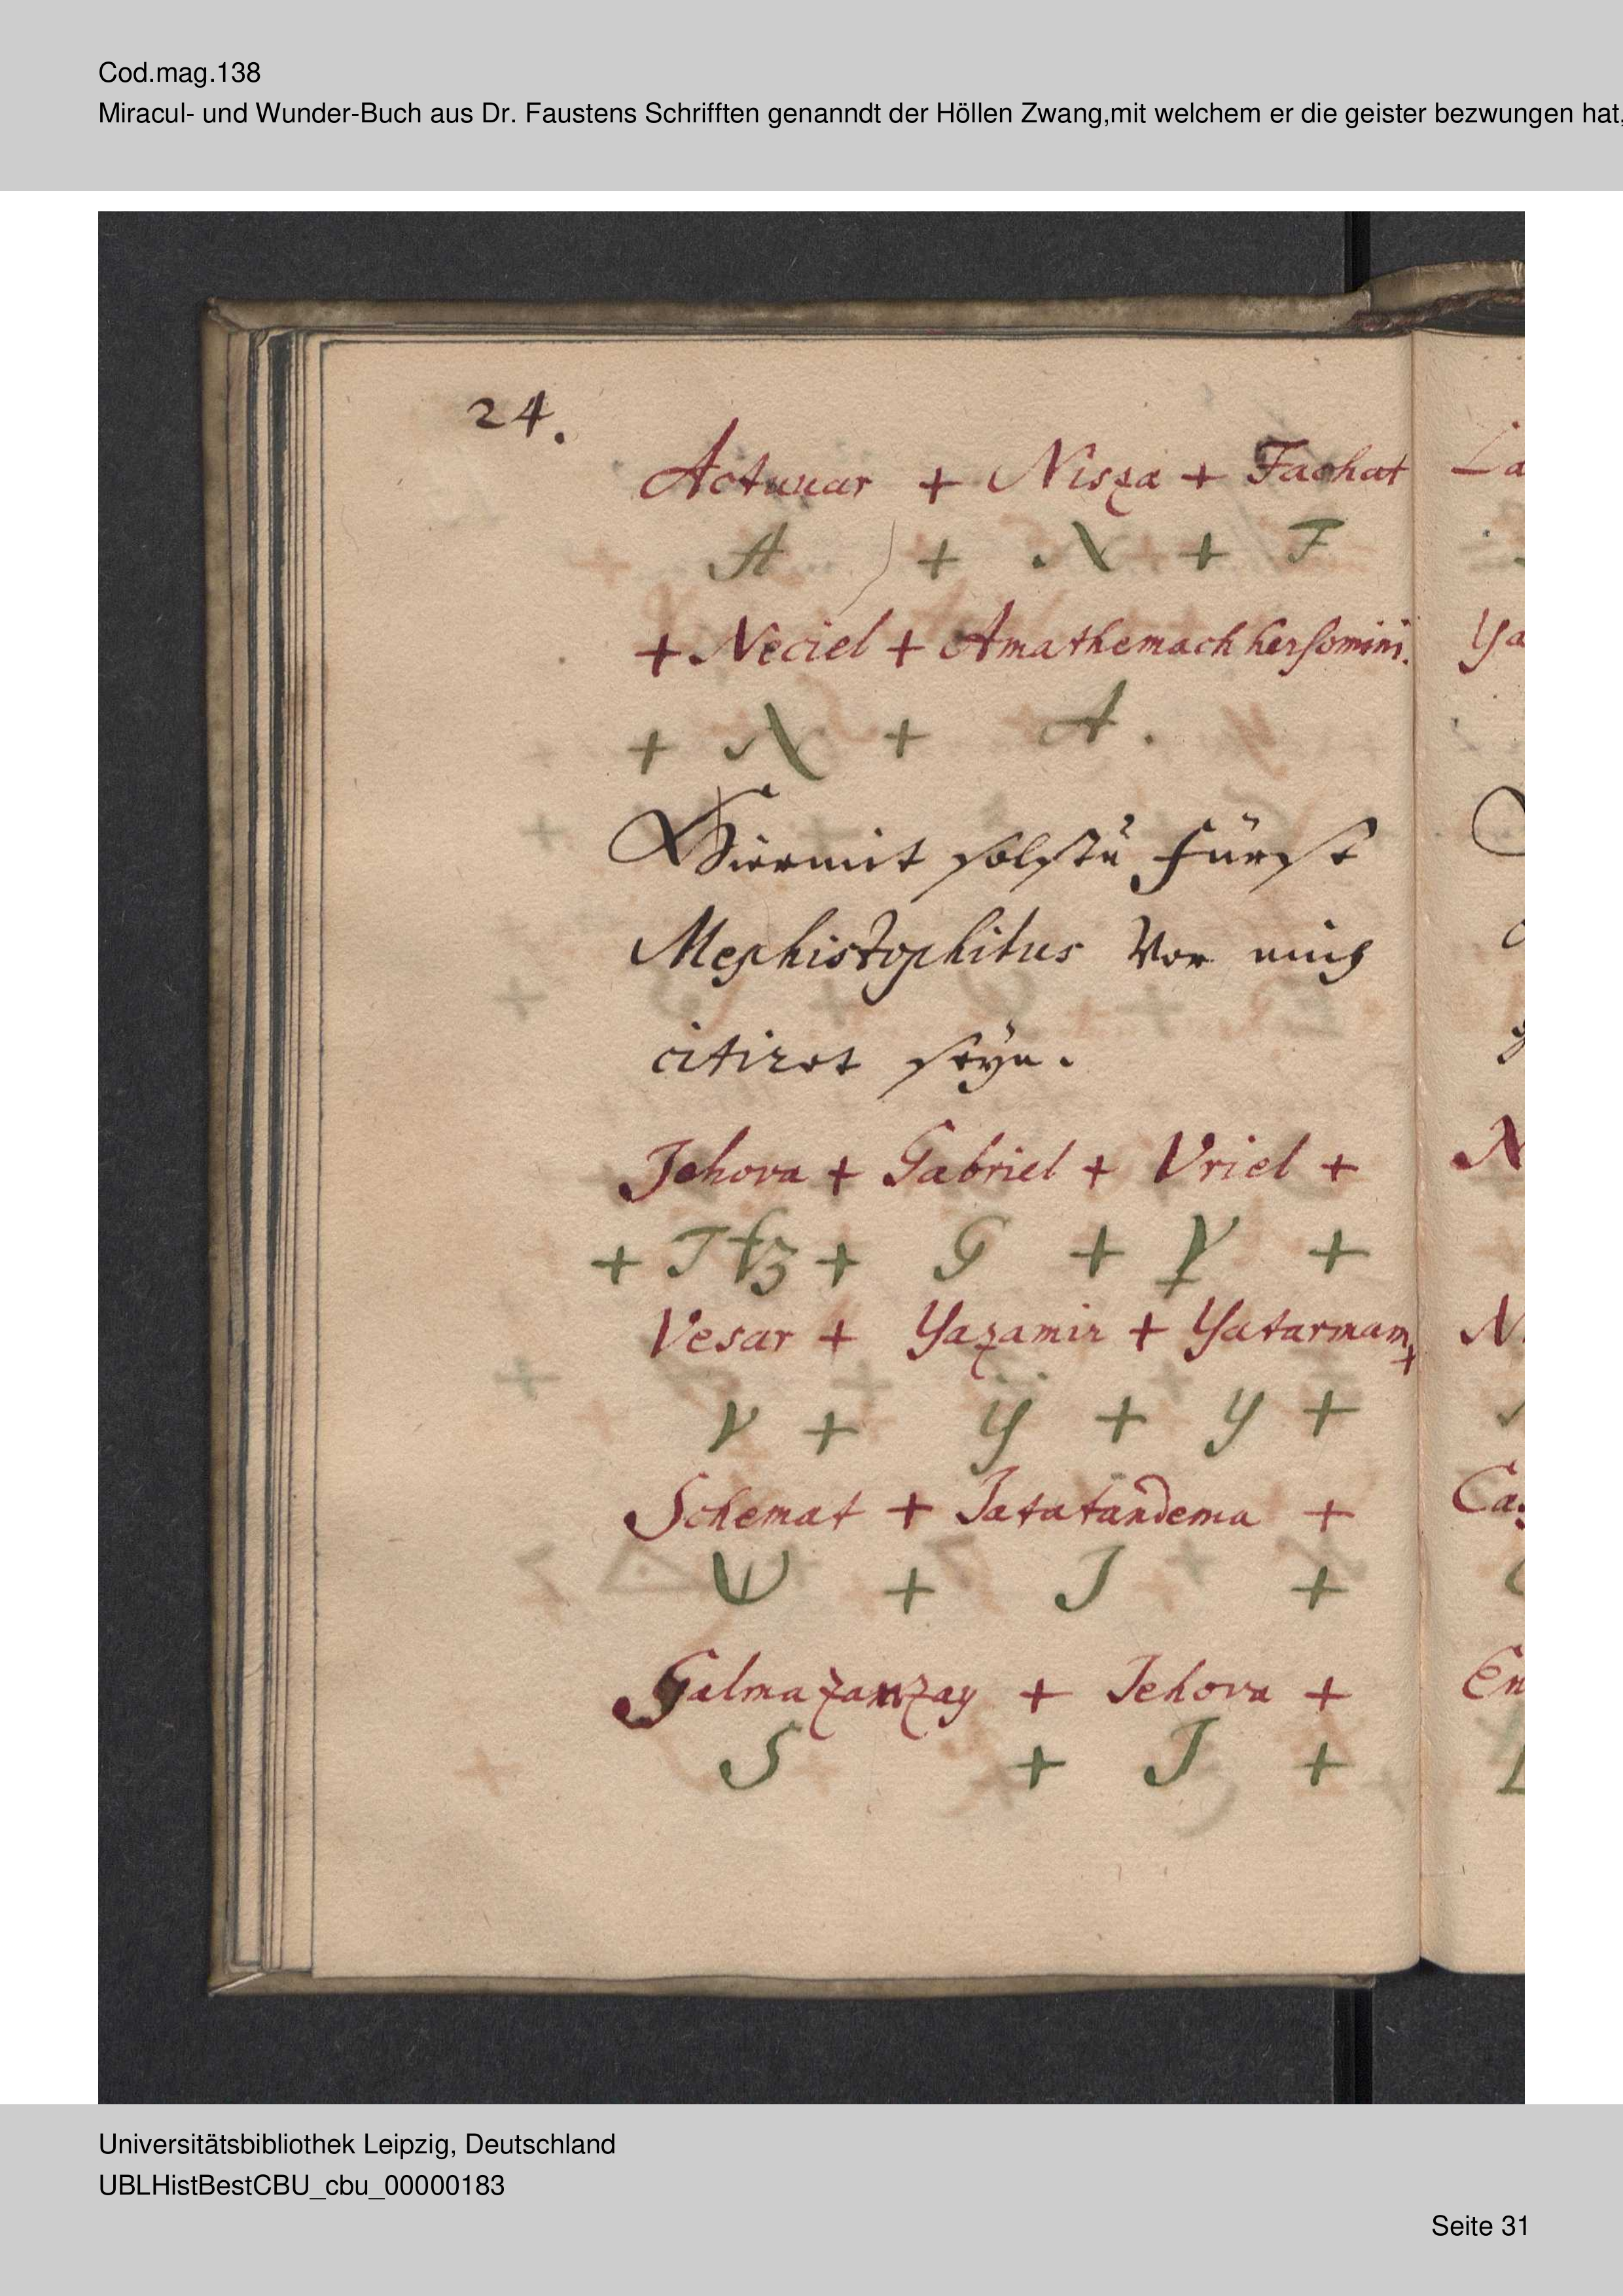 Cod.mag.138
Miracul- und Wunder-Buch aus Dr. Faustens Schrifften genanndt der Höllen Zwang,mit welchem er die geister bezwungen hat,
24.
+ Nisza + Fachat
A + N + F
+ Neciel + Amathemach hersomini.
+ N + A.
Hiermit solstu Fürst
Mephistophilus Vor mich
citiret seÿn.
Jehova + Gabriel + Vriel +
+ G + V +
Vesar + Yazamir + Yatarmam +
V + ÿ + y +
Schemat + Jatatandema +
Ψ + J +
Salmazanzay + Jehova +
S + J +
La
Ya
N
N
Ca
En
Universitätsbibliothek Leipzig, Deutschland
UBLHistBestCBU_cbu_00000183
Seite 31